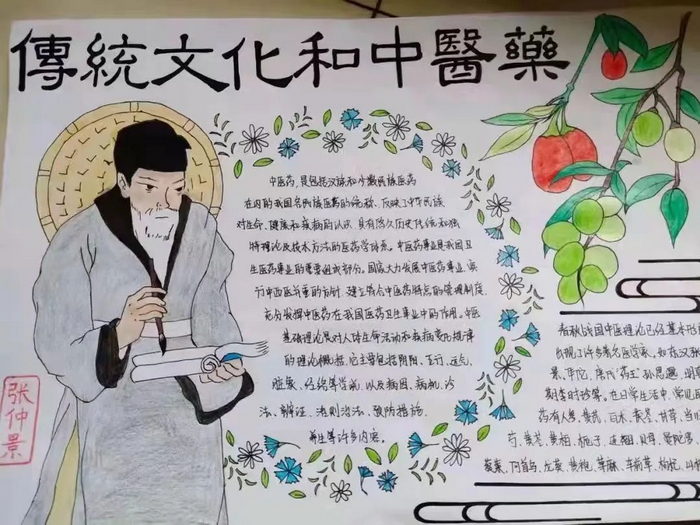 傳統文化和中醫藥
中医药,是包括汉族和少数民族医药
在内的我国各民族医药的统称,反映了中华民族
对生命、健康和疾病的认识,具有悠久历史传统和独
特理论及技术方法的医药学体系。中医药事业是我国卫
生医药事业的重要组成部分。国家大力发展中医药事业,实
行中西医并重的方针,建立符合中医药特点的管理制度,
充分发挥中医药在我国医药卫生事业中的作用。中医
基础理论是对人体生命活动和疾病变化规律
的理论概括,它主要包括阴阳、五行、运气、
脏象、经络等学说,以及病因、病机、诊
法、辨证、治则治法、预防措施、
养生等许多内容。
张仲景
春秋战国中医理论已经基本形
出现了许多著名医学家,如在汉
景、华佗、唐代"药王"孙思邈、明
期李时珍等。在日常生活中,常见
药有人参、黄芪、白术、黄芩、甘草、当
芍、黄芩、黄柏、栀子、连翘、贝母、
阿胶、车前草、枸杞、